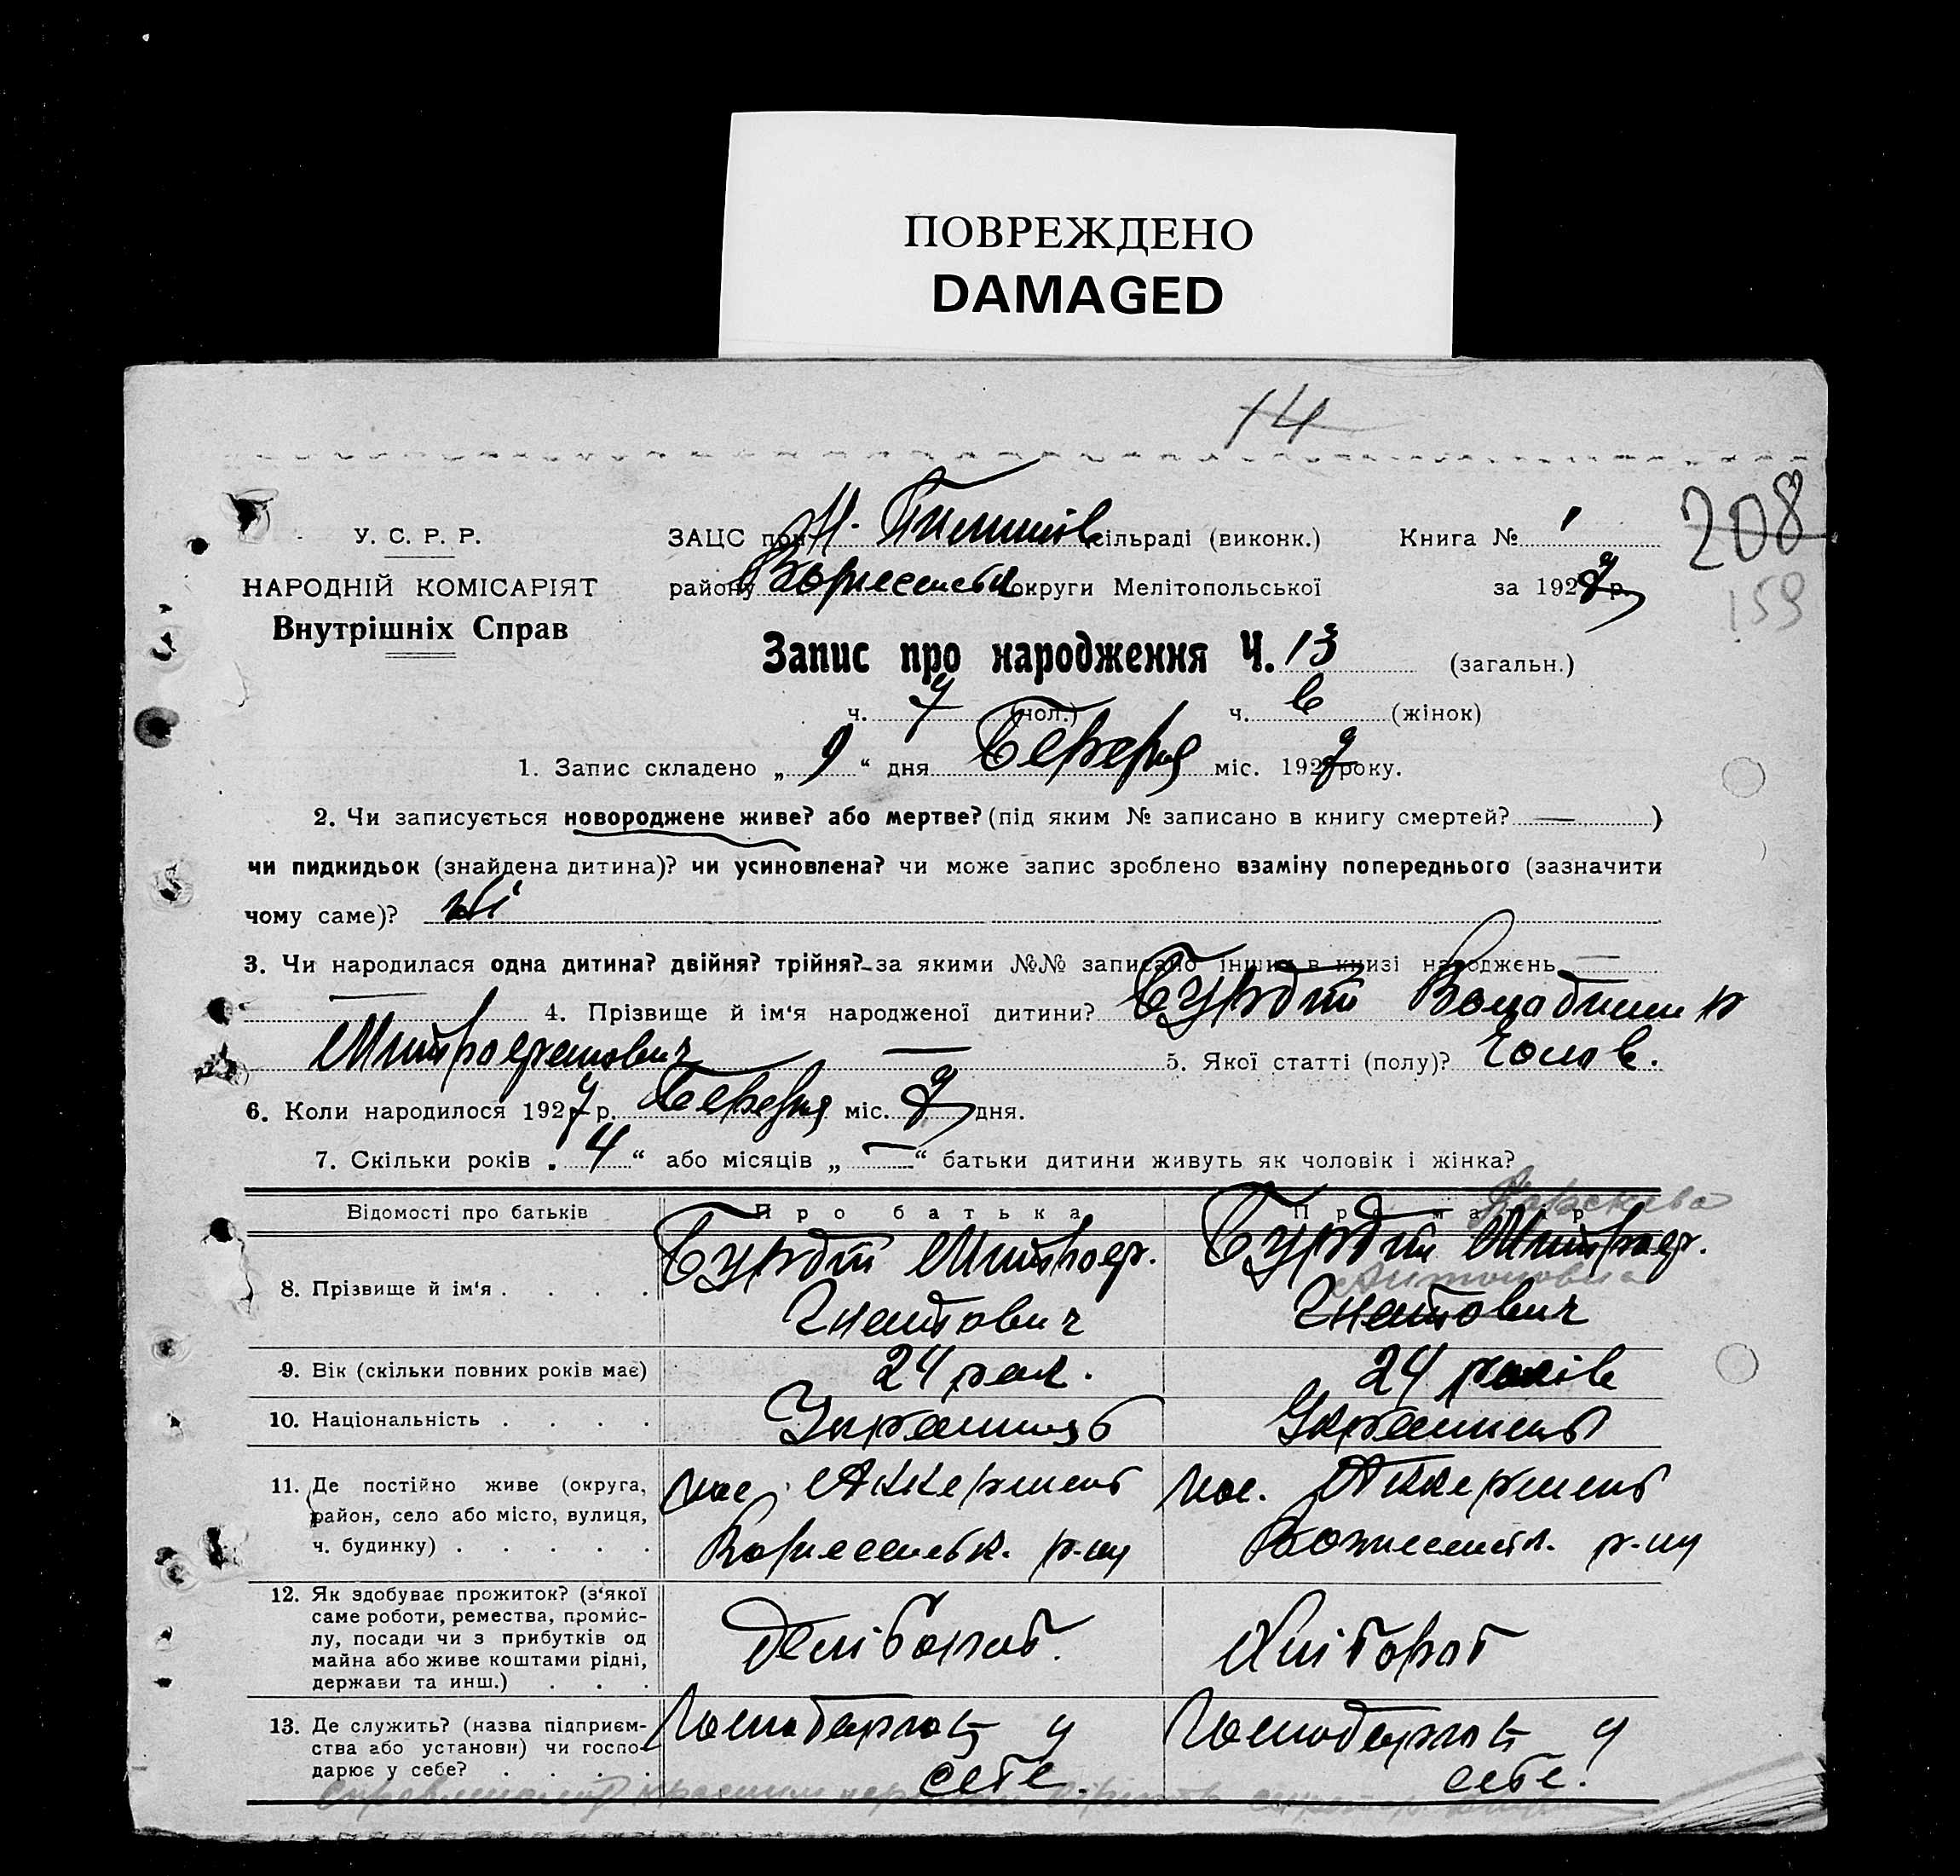 ПОВРЕЖДЕНО
DAMAGED
14
208
159
У. С. Р. Р.
НАРОДНІЙ КОМІСАРІЯТ
Внутрішніх Справ
ЗАЦС при Н. сільраді (виконк.) Книга № 1
району округи Мелітопольської за 1927 р.
Запис про народження Ч. 13 (загальн.)
ч. 7 (чол.) ч. 6 (жінок)
1. Запис складено „ 9 “ дня Березня міс. 1927 року.
2. Чи записується новороджене живе? або мертве? (під яким № записано в книгу смертей? — )
чи пидкидьок (знайдена дитина)? чи усиновлена? чи може запис зроблено взаміну попереднього (зазначити
чому саме)? Ні
3. Чи народилася одна дитина? двійня? трійня? за якими №№ записано інших в книзі народжень —
— 4. Прізвище й ім‘я народженої дитини? Бурдт
Митрофанович — 5. Якої статті (полу)? Чолов.
6. Коли народилося 1927 р. Березня міс. 7 дня.
7. Скільки років „ 4 “ або місяців „ — “ батьки дитини живуть як чоловік і жінка?
Відомості про батьків Про батька Про матір
Параскева
8. Прізвище й ім‘я . . . . Митроф. Митроф.
Антоновна
Гнатович Гнатович
9. Вік (скільки повних років має) 24 рок. 24 років
10. Національність . . . . Українець Українець
11. Де постійно живе (округа, район, село або місто, вулиця, ч. будинку) . . . . . пос. Аккермень Вознесенськ. р-ну пос. Аккермень Вознесенськ. р-ну
12. Як здобуває прожиток? (з‘якої саме роботи, ремества, промис-лу, посади чи з прибутків од майна або живе коштами рідні, держави та инш.) . . . Хлібороб Хлібороб
13. Де служить? (назва підприєм-ства або установи) чи госпо-дарює у себе? . . . . у себе. у себе.